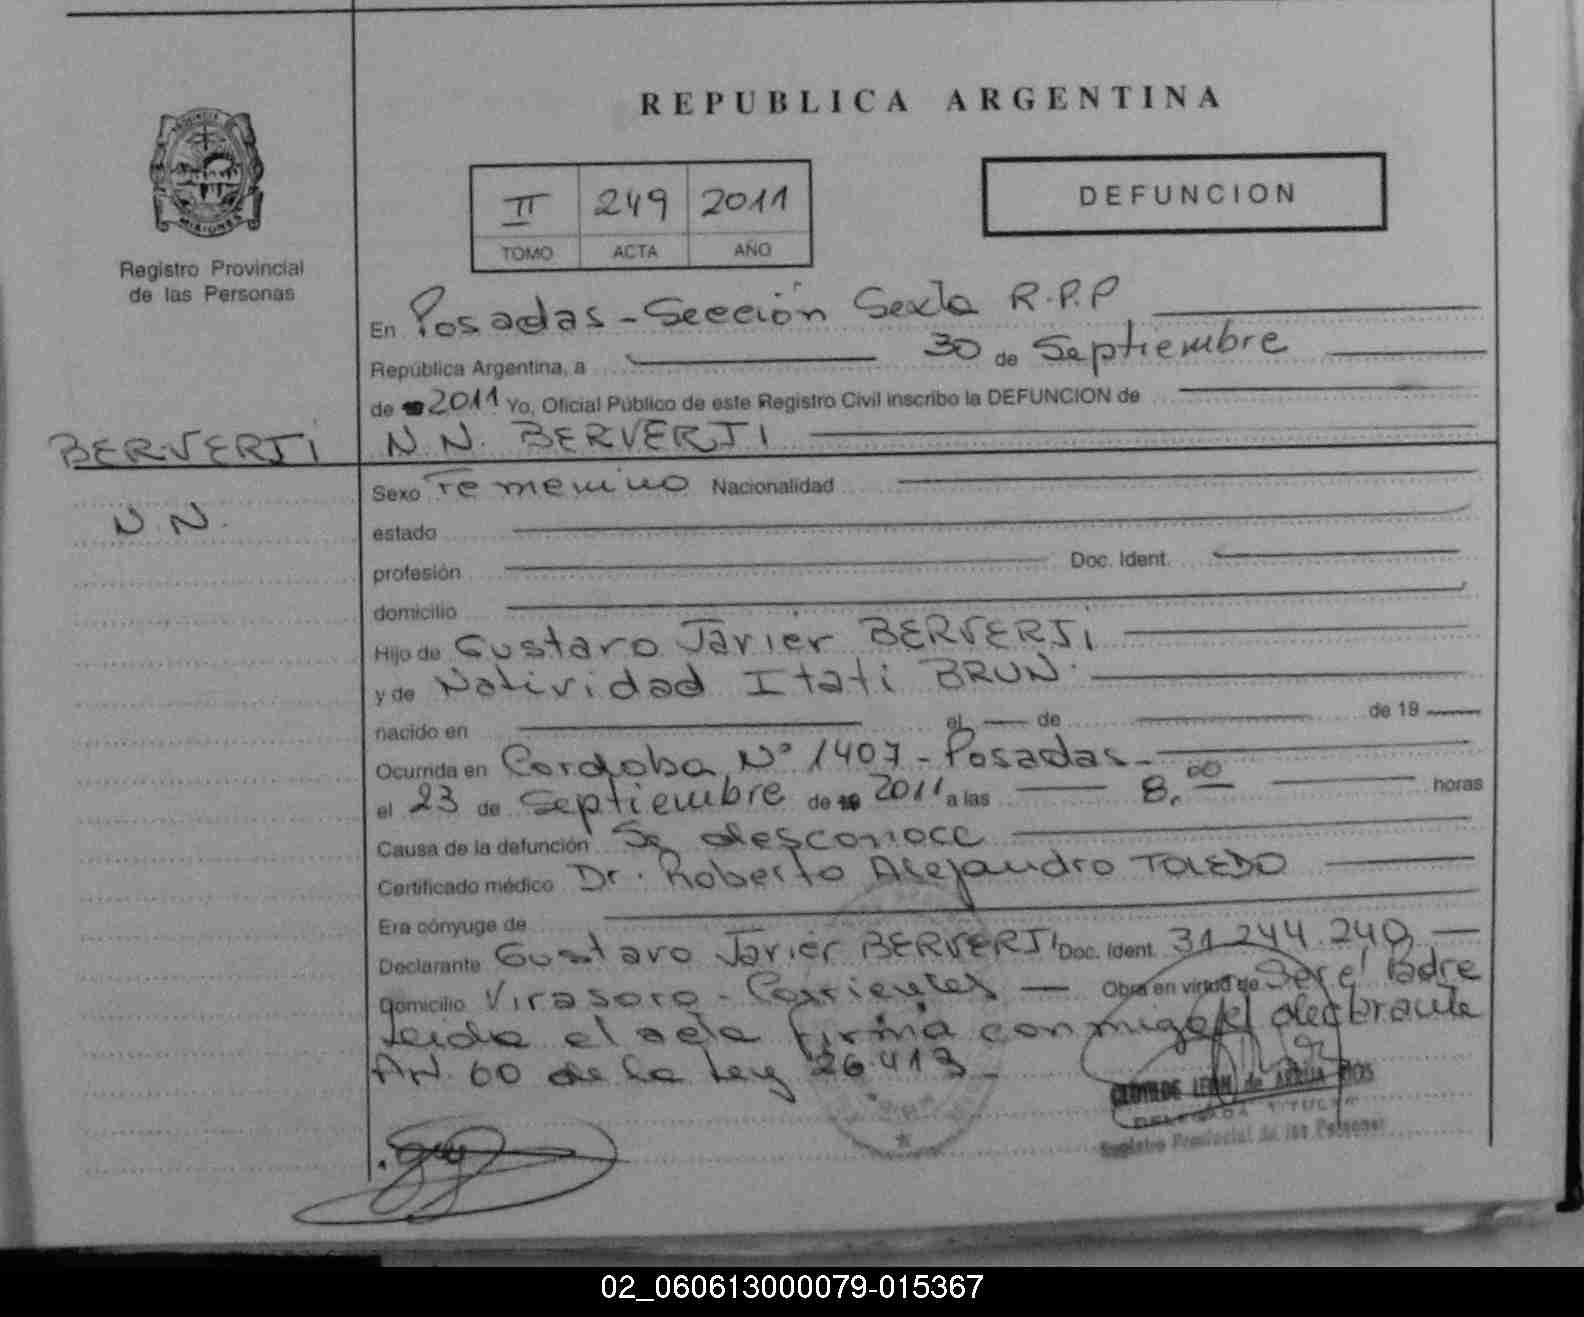 REPUBLICA ARGENTINA
PROVINCIA DE
MISIONES
Registro Provincial
de las Personas
II 249 2011
TOMO ACTA AÑO
DEFUNCION
En Posadas - Sección Sexta R.P.P
República Argentina, a 30 de Septiembre
de 2011 Yo, Oficial Público de este Registro Civil inscribo la DEFUNCION de
BERVERJI N.N. BERVERJI
N N.
Sexo Femenino Nacionalidad
estado
profesión Doc. Ident.
domicilio
Hijo de Gustavo Javier BERVERJI
y de Natividad Itati BRUN
nacido en el de de 19
Ocurrida en Cordoba Nº 1407 - Posadas -
el 23 de Septiembre de 2011 a las 8,00 horas
Causa de la defunción Se desconoce
Certificado médico Dr. Roberto Alejandro TOLEDO
Era cónyuge de
Declarante Gustavo Javier BERVERJI Doc. Ident. 31.244.240
Domicilio Virasoro - Corrientes Obra en virtud de Ser el Padre
Leida el acta firma conmigo el declarante
Art. 60 de la Ley 26.413
CLOTILDE LEON de
DELEGADA TITULAR
Registro Provincial de las Personas
02_060613000079-015367